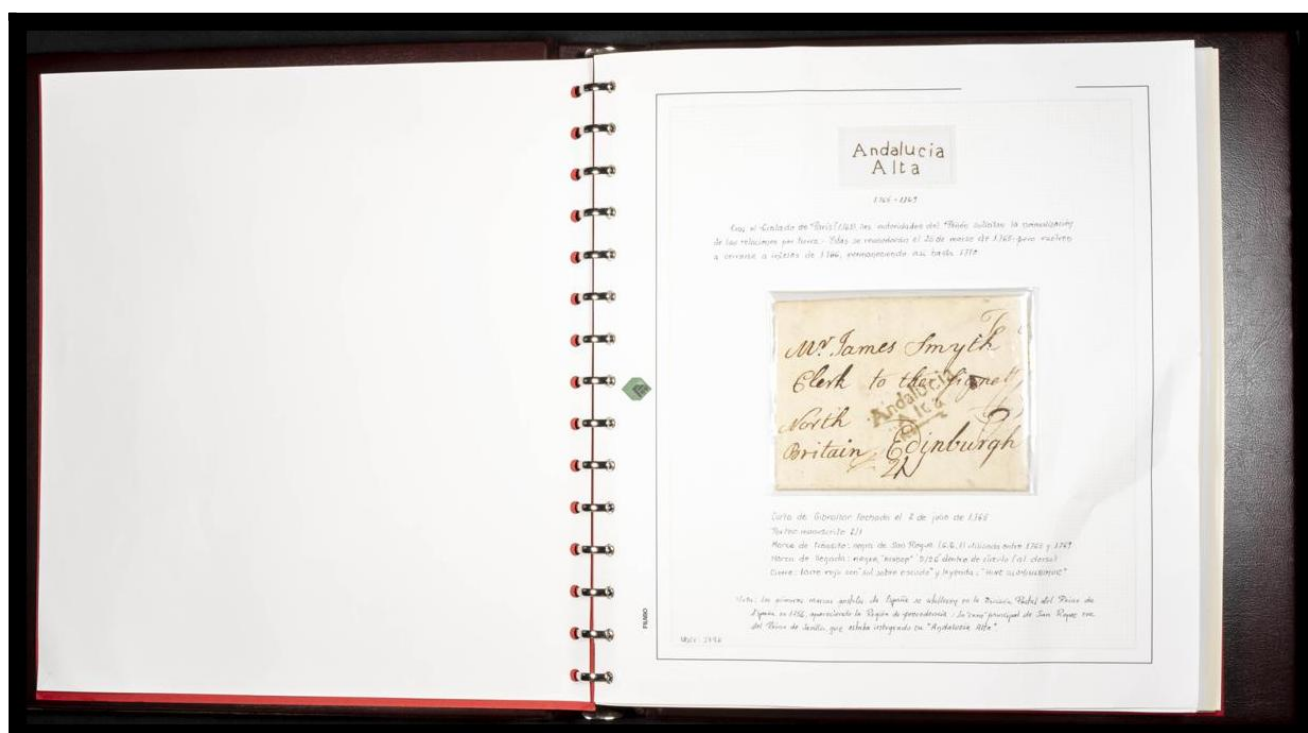 Andalucía
Alta
1765 - 1769
Con el Tratado de París (1763), las autoridades del Peñón solicitan la normalización
de las relaciones por tierra. Estas se reanudarán el 20 de marzo de 1765 pero vuelven
a cerrarse a de 1766, permaneciendo así hasta
Mr. James Smyth
Clerk to the Signett
North
Britain Edinburgh
Andalucia
Alta
Carta de Gibraltar fechada el 2 de julio de 1765
Porteo manuscrito 2/1
Marca de tránsito: negra de San Roque (G.B.1) utilizada entre 1765 y 1769
Marca de llegada: negra "BISHOP" dentro de círculo (al dorso)
Cierre: lacre rojo con "sol sobre escudo" y leyenda:
Nota: Las primeras marcas postales de España se establecen en la División Postal del Reino de
España en 1756, apareciendo la Región de procedencia. La "caja" principal de San Roque era
del Reino de Sevilla, que estaba integrado en "Andalucía Alta"
FILABO